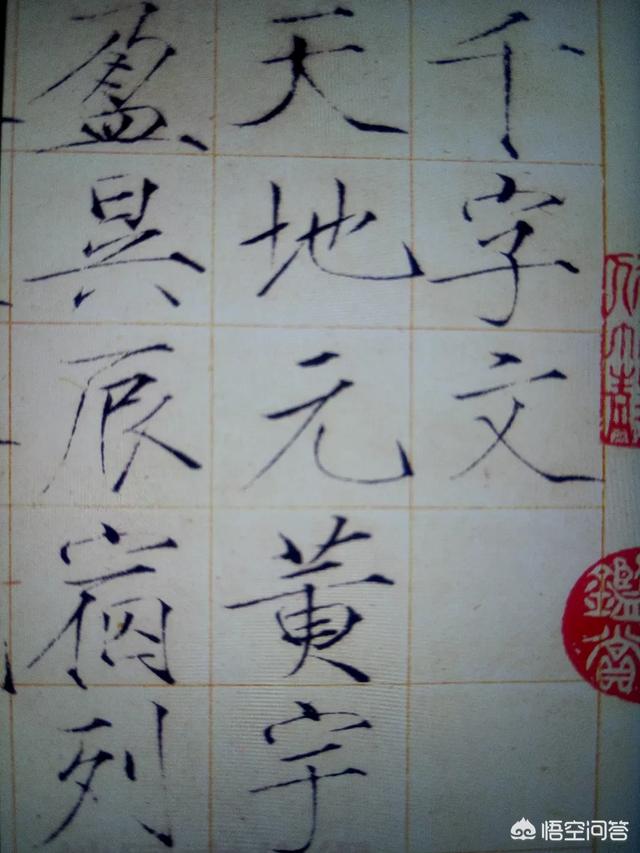 千字文
天地元黄宇
盈昃辰宿列
鑑賞
悟空问答